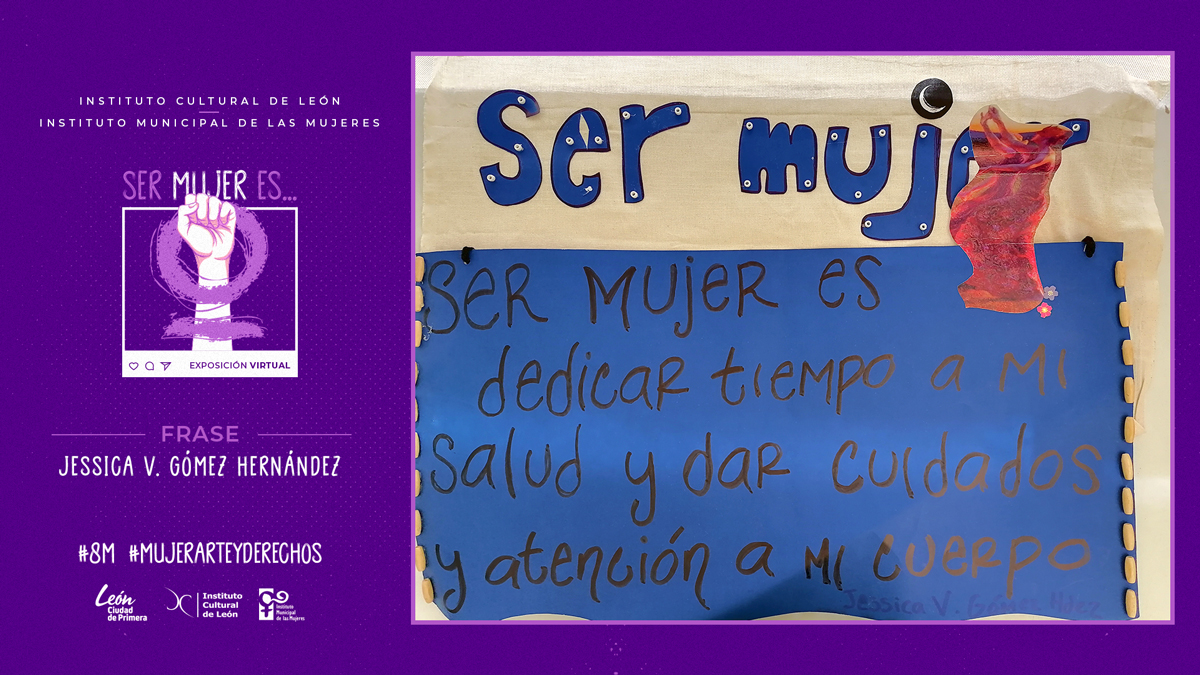 INSTITUTO CULTURAL DE LEÓN
INSTITUTO MUNICIPAL DE LAS MUJERES
SER MUJER ES...
EXPOSICIÓN VIRTUAL
FRASE
JESSICA V. GÓMEZ HERNÁNDEZ
#8M #MUJERARTEYDERECHOS
León
Ciudad
de Primera
Instituto
Cultural
de León
Instituto
Municipal
de las Mujeres
Ser mujer
SER MUJER ES
dedicar tiempo a MI
Salud y dar cuidados
y atención a MI cuerpo
Jessica V. Gómez Hdez